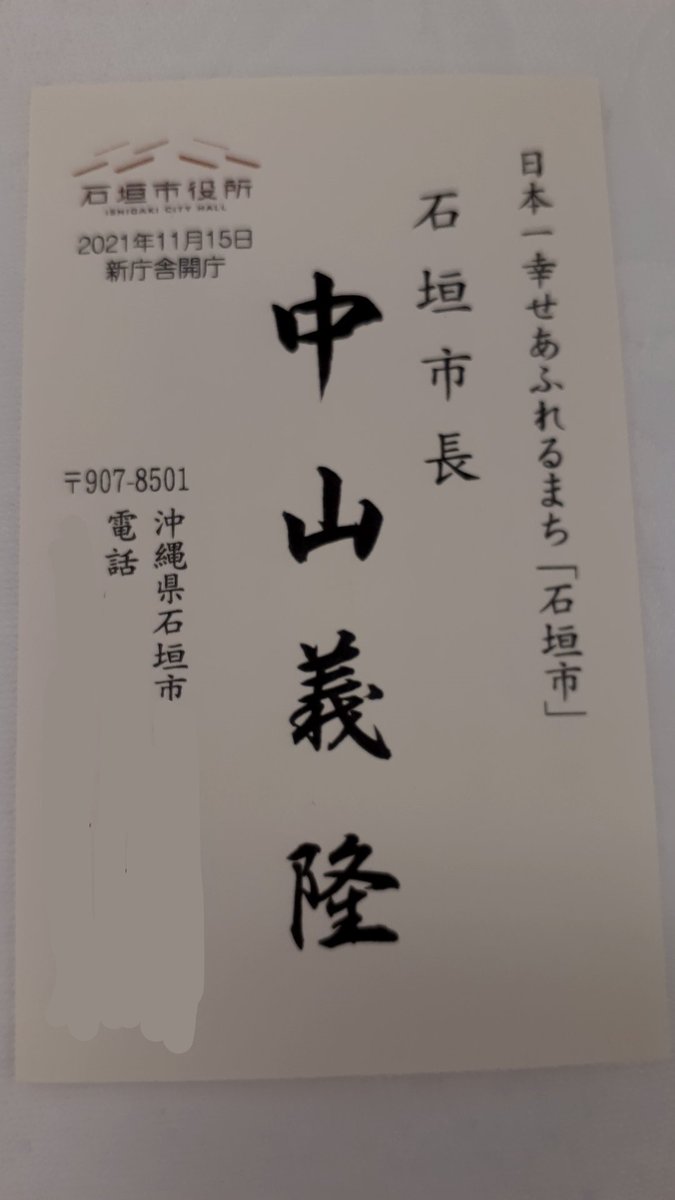 日本一幸せあふれるまち「石垣市」
石垣市長
中山義隆
石垣市役所
ISHIGAKI CITY HALL
2021年11月15日
新庁舎開庁
〒907-8501
沖縄県石垣市
電話